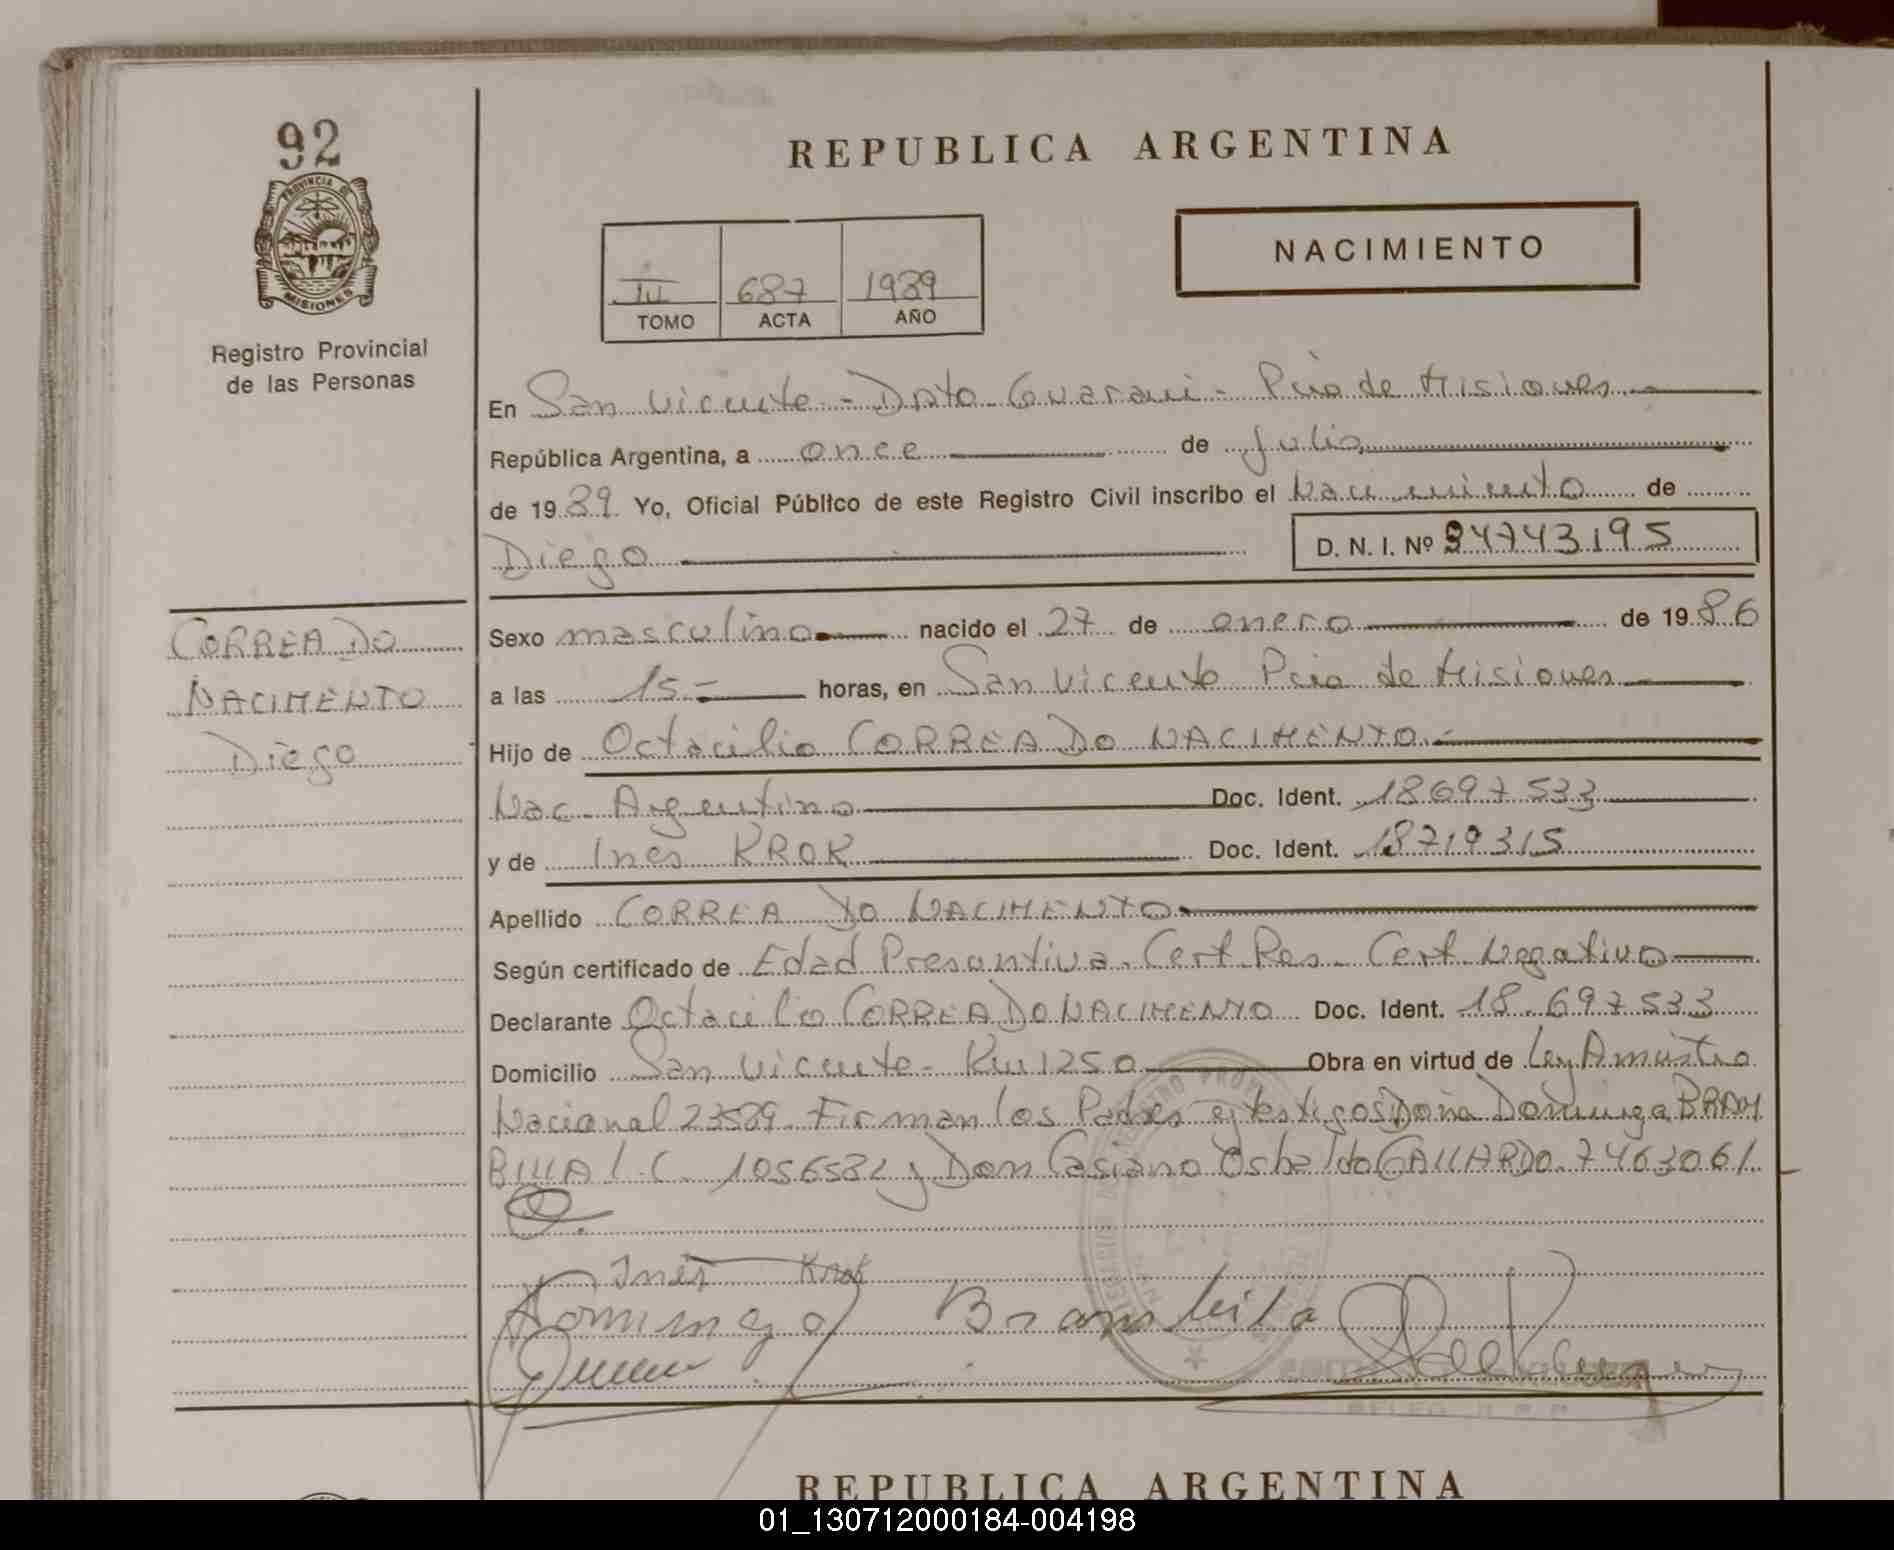 92
PROVINCIA DE
MISIONES
Registro Provincial
de las Personas
REPUBLICA ARGENTINA
NACIMIENTO
III 687 1989
TOMO ACTA AÑO
En San Vicente - Dpto Guarani - Pcia de Misiones.
República Argentina, a once de Julio,
de 1989. Yo, Oficial Público de este Registro Civil inscribo el Nacimiento de
Diego
D. N. I. Nº 34743195
CORREA DO
NACIMENTO
Diego
Sexo masculino nacido el 27 de enero de 1986
a las 15- horas, en San Vicente Pcia de Misiones
Hijo de Octacilio CORREA DO NACIMENTO.-
Nac. Argentino Doc. Ident. 18697533
y de Ines KROK Doc. Ident. 18719315
Apellido CORREA DO NACIMENTO
Según certificado de Edad Presuntiva. Cert. Res. Cert. Negativo
Declarante Octacilio CORREA DO NACIMENTO Doc. Ident. 18.697533
Domicilio San Vicente - Km 1250 Obra en virtud de Ley Amnistia
Nacional 23589. Firman los Padres y testigos Doña Dominga BRAM
BILLA L.C. 1056582 y Don Casiano Osbaldo GALLARDO. 7463061.
Inés Krok
Dominga Brambila
REPUBLICA ARGENTINA
01_130712000184-004198